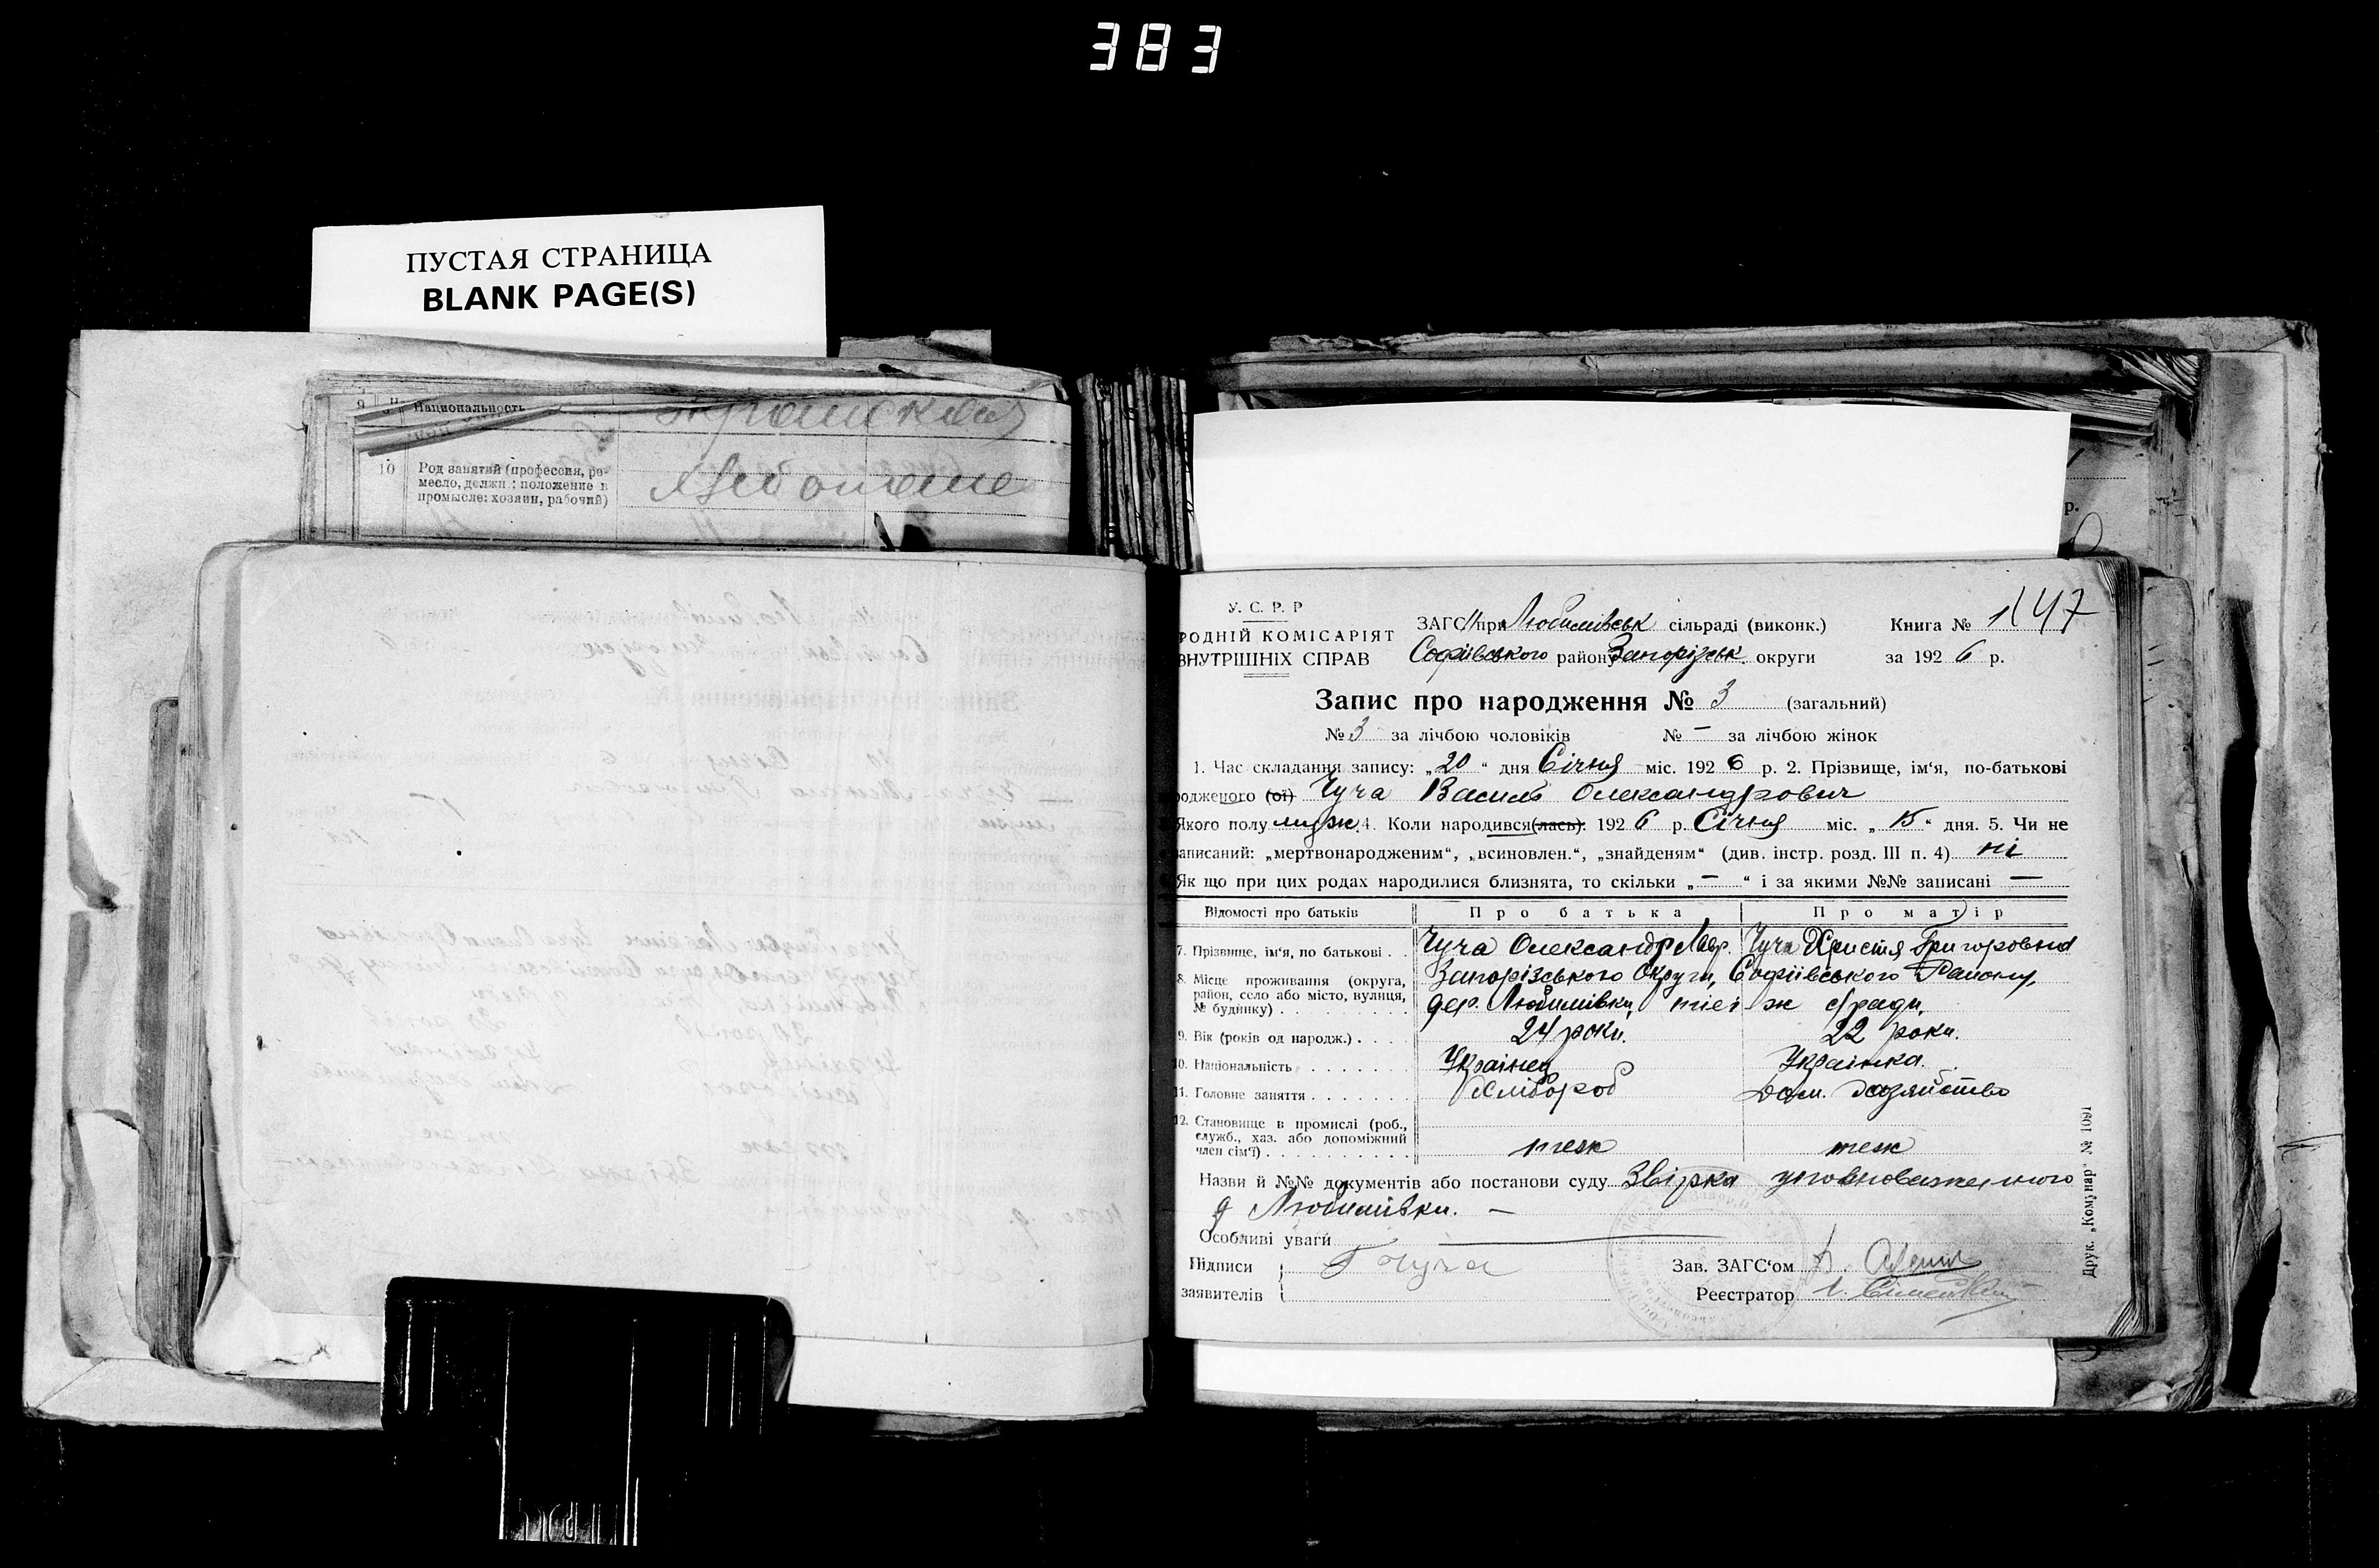 383
ПУСТАЯ СТРАНИЦА
BLANK PAGE(S)
9 Национальность
10 Род занятий (профессия, ре-
месло, должн.: положение в
промысле: хозяин, рабочий)
У. С. Р. Р
РОДНІЙ КОМІСАРІЯТ
ВНУТРІШНІХ СПРАВ
ЗАГС при Любимівськ сільраді (виконк.) Книга № 147
Софіївського району Запорізьк. округи за 1926 р.
Запис про народження № 3 (загальний)
№ 3 за лічбою чоловіків № – за лічбою жінок
1. Час складання запису: „20“ дня Січня міс. 1926 р. 2. Прізвище, ім‘я, по-батькові
родженого (ої) Чуча Василь Олександрович
Якого полу мужж. 4. Коли народився(лась). 1926 р. Січня міс. „15“ дня. 5. Чи не
аписаний: „мертвонародженим“, „всиновлен.“, „знайденям“ (див. інстр. розд. III п. 4) ні
Як що при цих родах народилися близнята, то скільки „–“ і за якими №№ записані –
Відомості про батьків Про батька Про матір
7. Прізвище, ім‘я, по батькові . . Чуча Олександр Лавр. Чуча Христя Григоровна
8. Місце проживання (округа,
район, село або місто, вулиця,
№ будинку) . . . . . . . . . .
Запорізського Округи, Софіївського Району,
дер. Любимівки, тієї ж с/ради.
9. Вік (років од народж.) . . . . 24 роки. 22 роки.
10. Національність . . . . . . . Українец Українка.
11. Головне заняття . . . . . . . Хлібороб Дом. хозяйство
12. Становище в промислі (роб.,
служб., хаз. або допоміжний
член сім‘ї) . . . . . . . . . . теж теж
Назви й №№ документів або постанови суду Звірка уповноваженого
д Любимівки. –
Особливі уваги
Підписи Г Чуча Зав. ЗАГС‘ом
заявителів Реєстратор
Друк. „Комунар“ № 1091